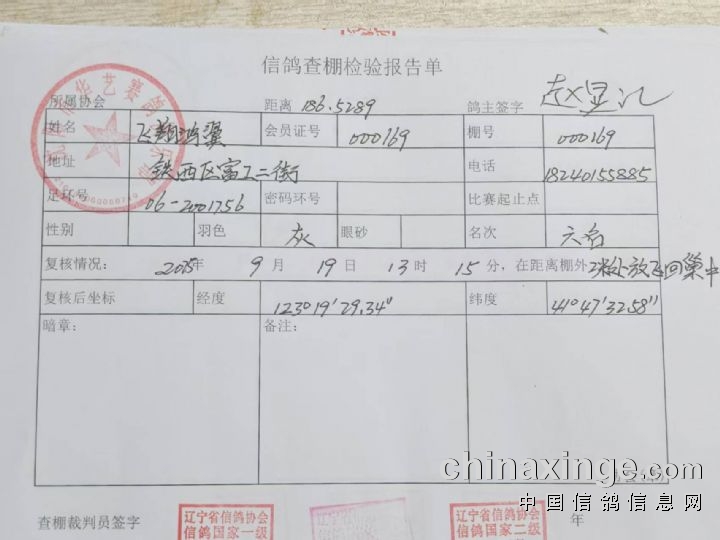 信鸽查棚检验报告单
所属协会 距离 186.5289 鸽主签字
姓名 飞翔鸿翼 会员证号 000169 棚号 000169
地址 铁西区富工二街 电话 18240155885
足环号 06-2001756 密码环号 比赛起止点
性别 羽色 灰 眼砂 名次 六名
复核情况: 2025年 9 月 19 日 13 时 15 分,在距离棚外 2米处放飞回巢中
复核后坐标 经度 123°19'29.34" 纬度 41°47'32.58"
暗章: 备注:
chinaxinge.com
中国信鸽信息网
查棚裁判员签字 辽宁省信鸽协会 辽宁省信鸽协会 年
信鸽国家一级 信鸽国家二级